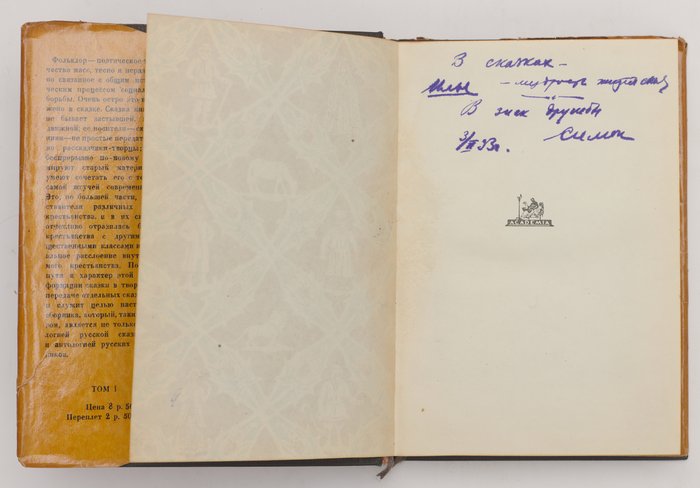 Фольклор— поэтическое
чество масс, тесно и нераз
но связанное с общим ист
ческим процессом социал
борьбы. Очень остро это в
жено в сказке. Сказка ни
не бывает застывшей,
движной; ее носители—ск
ники— не простые передат
но рассказчики-творцы;
беспрерывно по-новому
мируют старый матери
умеют сочетать его с те
самой жгучей современ
Это, по большей части,
ставители различных
крестьянства, и в их ск
отчетливо отразилась б
крестьянства с другим
щественными классами и
альное расслоение внут
мого крестьянства. По
пути и характер этой
формации сказки в твор
передаче отдельных сказ
и служит целью наст
сборника, который, таки
ром, является не только
логией русской сказ
и антологией русских
ников.
ТОМ I
Цена 8 р. 50
Переплет 2 р. 50
В сказках –
– мудрость
В знак дружбы
Симон
ACADEMIA